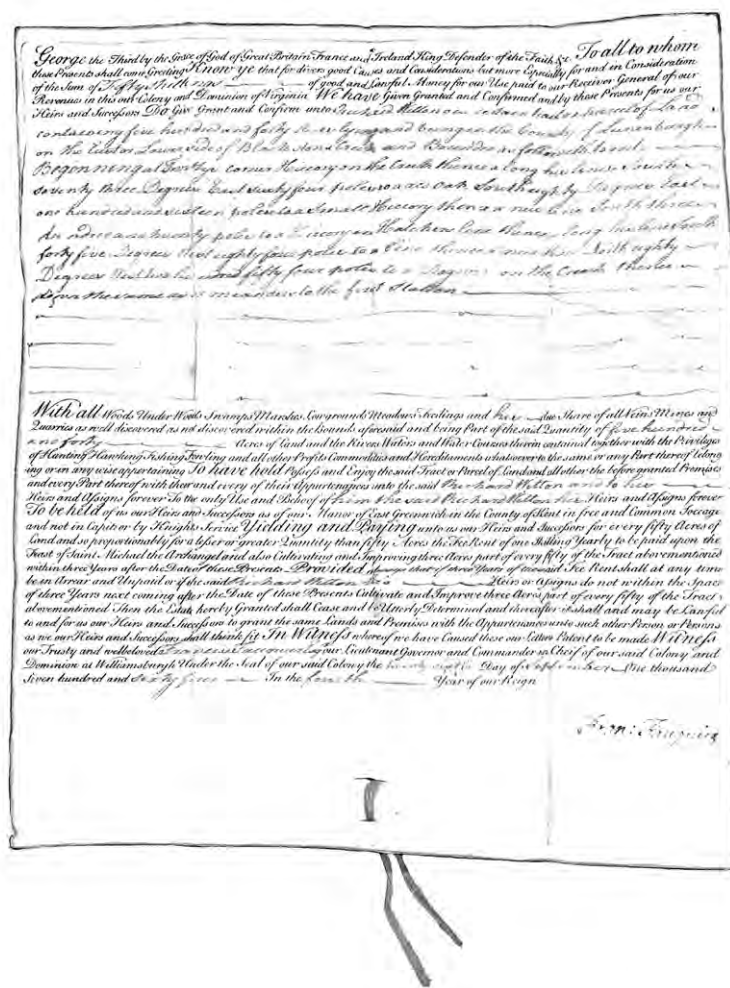 George the Third by the Grace of God of Great Britain France and Ireland King Defender of the Faith &c To all to whom
these Presents shall come Greeting Know ye that for divers good Causes and Considerations but more Especially for and in Consideration
of the Sum of Fifty Shillings of good and Lawful Money for our Use paid to our Receiver General of our
Revenues in this our Colony and Dominion of Virginia We have Given Granted and Confirmed and by these Presents for us our
Heirs and Successors Do Give Grant and Confirm unto Richard Witton one certain tract or parcel of Land
containing five hundred and forty Acres lying and being in the County of Lunenburgh
on the Lower side of Black stone Creek and Bounded as followeth to wit
Beginning at corner Hiccory on the Creek thence along his lines South
seventy three Degrees East sixty four poles to a red Oak South eighty Degrees East
one hundred and sixteen poles to a Small Hiccory thence a new line South three
Hundred and twenty poles to a Hiccory in line thence along his lines South
forty five Degrees West eighty four poles to a Pine thence new lines North eighty
Degrees West two hundred and fifty four poles to a on the Creek thence
down the same as it meanders to the first Station
With all Woods Under Woods Swamps Marshes Lowgrounds Meadows Feedings and his due Share of all Veins Mines and
Quarries as well discovered as not discovered within the Bounds aforesaid and being Part of the said Quantity of five hundred
and forty Acres of Land and the Rivers Waters and Water Courses therein contained together with the Priviliges
of Hunting Hawking Fishing Fowling and all other Profits Commodities and Hereditaments whatsoever to the same or any Part thereof belong
ing or in any wise appertaining To have hold Possess and Enjoy the said Tract or Parcel of Land and all other the before granted Premises
and every Part thereof with their and every of their Appurtenances unto the said Richard Witton and to his
Heirs and Assigns forever To the only Use and Behoof of him the said Richard Witton his Heirs and Assigns forever
To be held of us our Heirs and Successors as of our Manor of East Greenwich in the County of Kent in free and Common Soccage
and not in Capite or by Knights Service Yielding and Paying unto us our Heirs and Successors for every fifty Acres of
Land and so proportionably for a lesser or greater Quantity than fifty Acres the Fee Rent of one Shilling Yearly to be paid upon the
Feast of Saint Michael the Archangel and also Cultivating and Improving three Acres part of every fifty of the Tract abovementioned
within three Years after the Date of these Presents Provided always that if three Years of the said Fee Rent shall at any time
be in Arrear and Unpaid or if the said Richard Witton his Heirs or Assigns do not within the Space
of three Years next coming after the Date of these Presents Cultivate and Improve three Acres part of every fifty of the Tract
abovementioned Then the Estate hereby Granted shall Cease and be Utterly Determined and thereafter it shall and may be Lawful
to and for us our Heirs and Successors to grant the same Lands and Premises with the Appurtenances unto such other Person or Persons
as we our Heirs and Successors shall think fit In Witness whereof we have Caused these our Letters Patent to be made Witness
our Trusty and welbeloved Francis Fauquier Esq our Lieutenant Governor and Commander in Cheif of our said Colony and
Dominion at Williamsburgh Under the Seal of our said Colony the Day of September One thousand
Seven hundred and sixty four In the fourth Year of our Reign
Fran: Fauquier